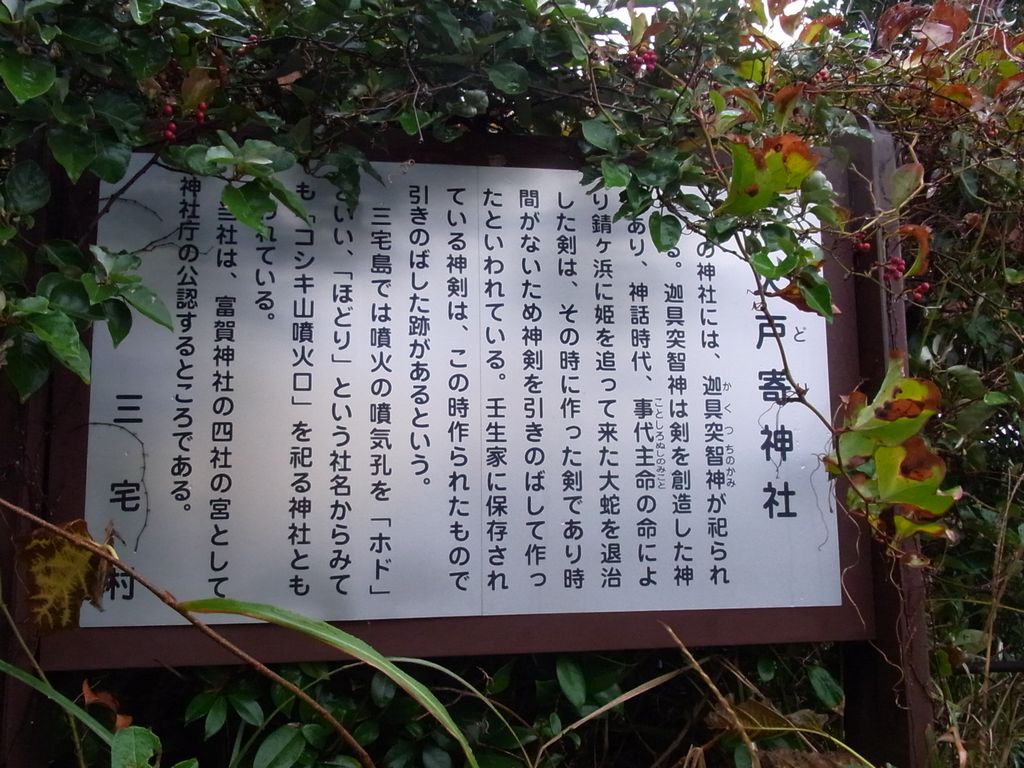 戸寄神社
の神社には、迦具突智神が祀られ
る。迦具突智神は剣を創造した神
あり、神話時代、事代主命の命によ
り錆ヶ浜に姫を追って来た大蛇を退治
した剣は、その時に作った剣であり時
間がないため神剣を引きのばして作っ
たといわれている。壬生家に保存され
ている神剣は、この時作られたもので
引きのばした跡があるという。
三宅島では噴火の噴気孔を「ホド」
といい、「ほどり」という社名からみて
も「コシキ山噴火口」を祀る神社とも
れている。
当社は、富賀神社の四社の宮として
神社庁の公認するところである。
三宅村